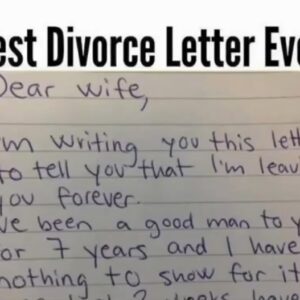 est Divorce Letter Eve
Dear wife,
'm writing you this lett
to tell you that I'm leav
you forever.
've been a good man to y
for 7 years and I have
nothing to show for it
2 weeks have